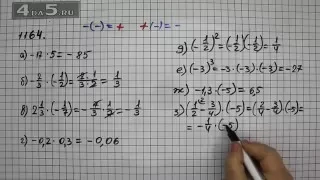 4DA5.RU
-(-) = +   +(-) = -
1164.
а) -17·5 = -85
б) -2/3·(-1/2) = 2/3·1/2 = 1/3
в) 2 1/3·(-1/7) = -7/3·1/7 = -1/3
г) -0,2·0,3 = -0,06
д) (-1/2)² = (-1/2)(-1/2) = 1/4
е) (-3)³ = -3·(-3)·(-3) = -27
ж) -1,3·(-5) = 6,5
з) (1/2 - 3/4)·(-5) = (2/4 - 3/4)(-5) =
= -1/4·(-5)